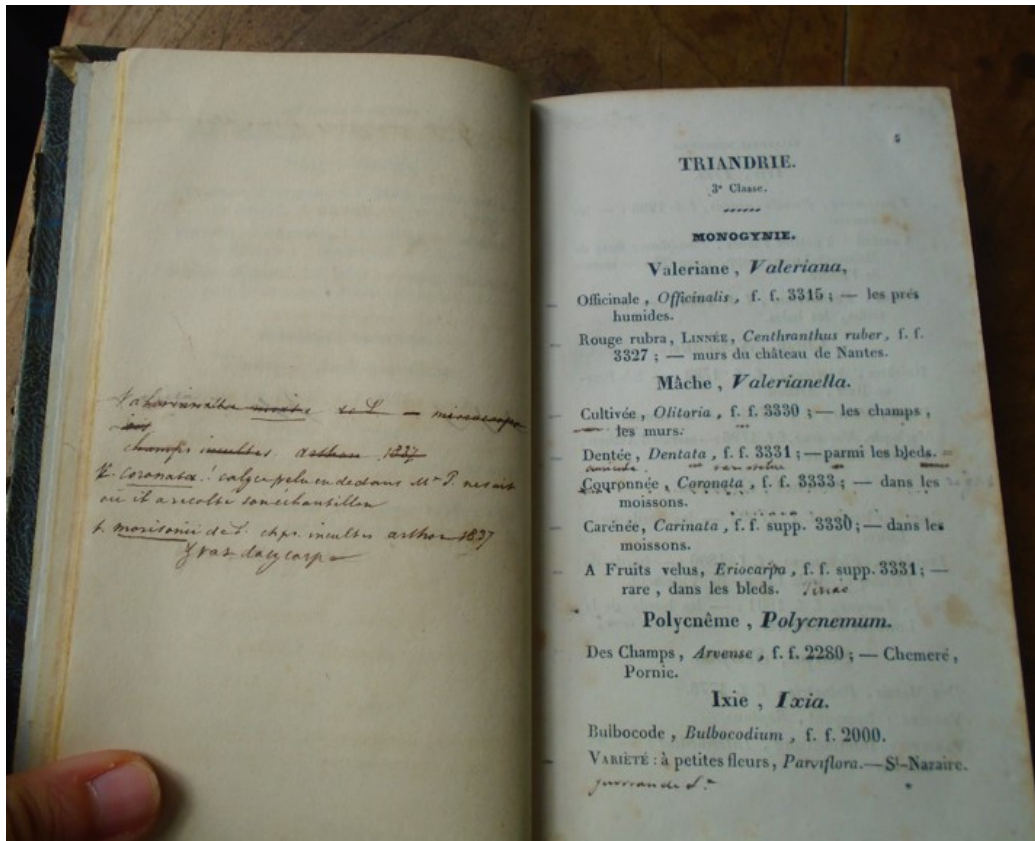 champs incultes arthon 1837
V. coronata! calyce velu en dedans Mr P. ne sait
où il a recolté son échantillon
V. morisonii de L. chps incultes arthon 1837
β var. dasycarpa
5
TRIANDRIE.
3e Classe.
MONOGYNIE.
Valeriane , Valeriana,
Officinale , Officinalis , f. f. 3315 ; — les prés
humides.
Rouge rubra, LINNÉE, Centhranthus ruber, f. f.
3327 ; — murs du château de Nantes.
Mâche , Valerianella.
Cultivée, Olitoria , f. f. 3330 ; — les champs ,
les murs.
Dentée, Dentata , f. f. 3331 ; — parmi les bleds.
Couronnée , Coronata , f. f. 3333 ; — dans les
moissons.
Carénée, Carinata , f. f. supp. 3330 ; — dans les
moissons.
A Fruits velus, Eriocarpa , f. f. supp. 3331 ; —
rare , dans les bleds.
Polycnême , Polycnemum.
Des Champs , Arvense , f. f. 2280 ; — Chemeré ,
Pornic.
Ixie , Ixia.
Bulbocode , Bulbocodium , f. f. 2000.
VARIÉTÉ : à petites fleurs , Parviflora. — St-Nazaire.